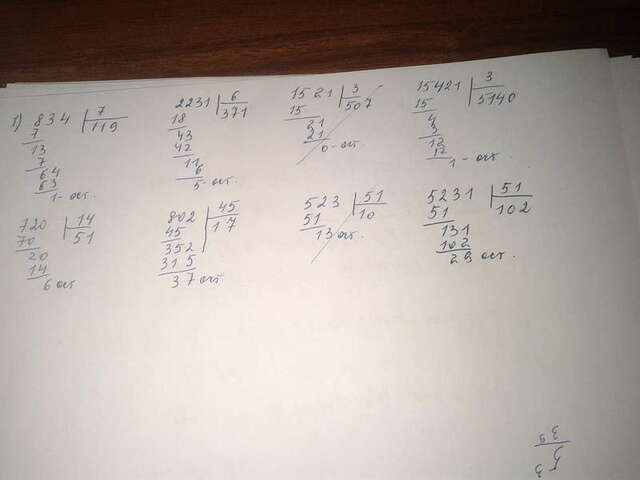 1) 834 | 7
7 | 119
13
7
64
63
1 - ост.
2231 | 6
18 | 371
43
42
11
6
5 - ост.
1521 | 3
15 | 507
21
21
0 - ост.
15421 | 3
15 | 5140
4
3
12
12
1 - ост.
720 | 14
70 | 51
20
14
6 ост
802 | 45
45 | 17
352
315
37 ост
523 | 51
51 | 10
13 ост.
5231 | 51
51 | 102
131
102
29 ост.
53